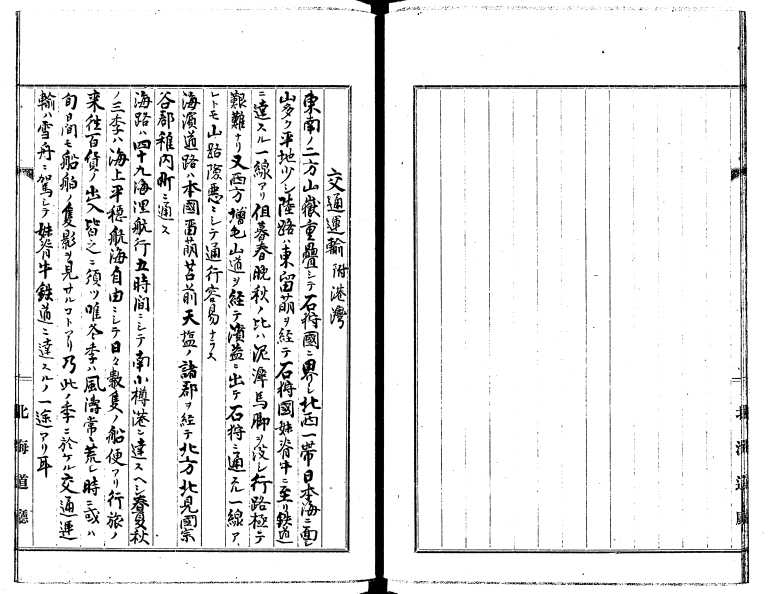 交通運輸 附港灣
東南ノ二方山嶽重疊シテ石狩國ニ界シ北西一帶日本海ニ面シ
山多ク平地少シ陸路ハ東留萌ヲ経テ石狩國妹脊牛ニ至リ鉄道
ニ達スル一線アリ但暮春晩秋ノ比ハ泥濘馬脚ヲ没シ行路極テ
艱難ナリ又西方増毛山道ヲ経テ濱益ニ出テ石狩ニ通スル一線ア
レトモ山路險悪ニシテ通行容易ナラス
海濱道路ハ本國留萌苫前天塩ノ諸郡ヲ経テ北方北見國宗
谷郡稚内町ニ通ス
海路ハ四十九海浬航行五時間ニシテ南小樽港ニ達スヘシ春夏秋
ノ三季ハ海上平穏航海自由ニシテ日々數隻ノ船便アリ行旅ノ
来往百貨ノ出入皆之ニ須ツ唯冬季ハ風濤常ニ荒レ時ニ或ハ
旬日間モ船舶ノ隻影ヲ見サルコトアリ乃此ノ季ニ於ケル交通運
輸ハ雪舟ニ駕シテ妹脊牛鉄道ニ達スルノ一途アリ耳
北海道廳
北海道廳